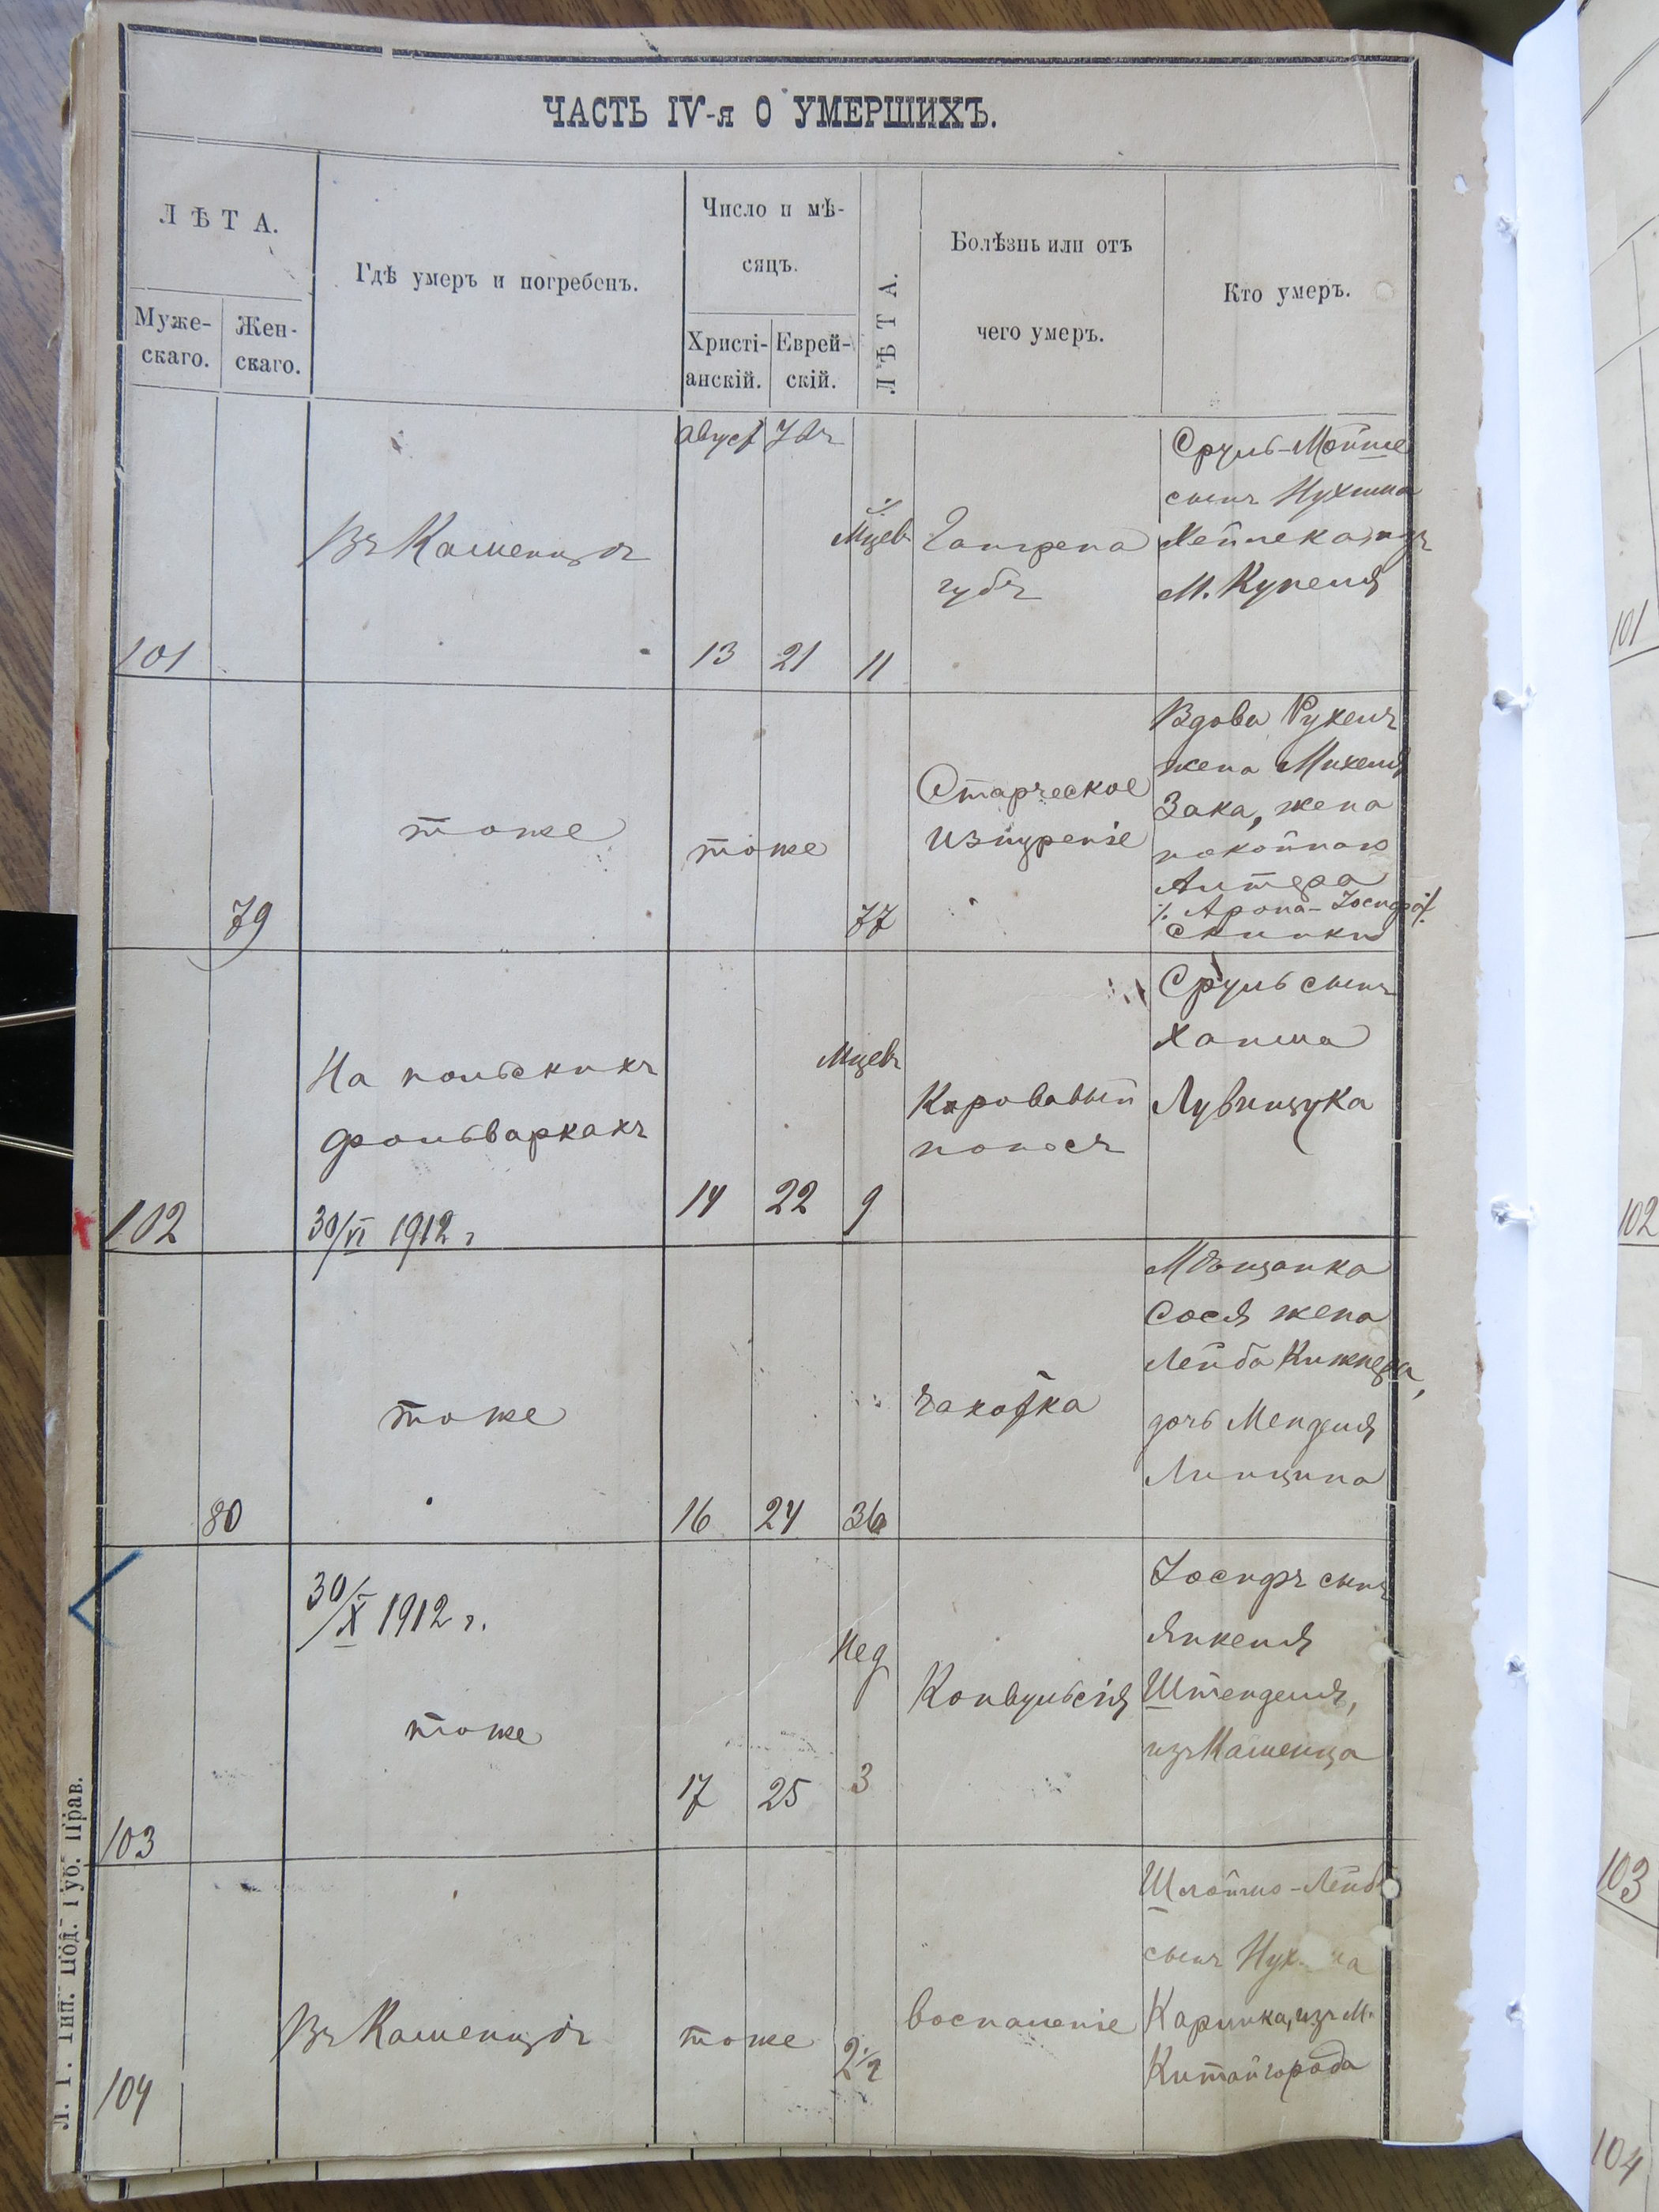 ЧАСТЬ IV-я О УМЕРШИХЪ.
ЛѢТА.
Муже-
скаго.
Жен-
скаго.
Гдѣ умеръ и погребенъ.
Число и мѣ-
сяцъ.
Христі-
анскій.
Еврей-
скій.
ЛѢТА.
Болѣзнь или отъ
чего умеръ.
Кто умеръ.
101
Въ Каменцѣ
Август
13
21
Мцев
11
Гангрена
губъ
Сруль-Мойше
сынъ Нухима
изъ
м. Купеля
79
тоже
тоже
77
Старческое
изнуреніе
Вдова Рухель
жена Михеля
Зака, жена
покойнаго
Алтера
./. Арона-Іосифа ./.
102
На польскихъ
фольваркахъ
30/VI 1912 г
14
22
Мцевъ
9
Кровавый
поносъ
Сруль сынъ
Хаима
Лувищука
80
тоже
16
24
36
Чахотка
Мѣщанка
Сося жена
Лейба Кижнера,
дочь Менделя
Липцина
103
30/X 1912 г.
тоже
17
25
Нед
3
Конвульсія
Іосифъ сынъ
Янкеля
Штенделя,
изъ Каменца
104
Въ Каменцѣ
тоже
2 1/2
воспаленіе
Шлойма-Лейб
сынъ
Карлика, изъ м.
Китайгорода
Л. Г. Тип. Под. Губ. Прав.
101
102
103
104